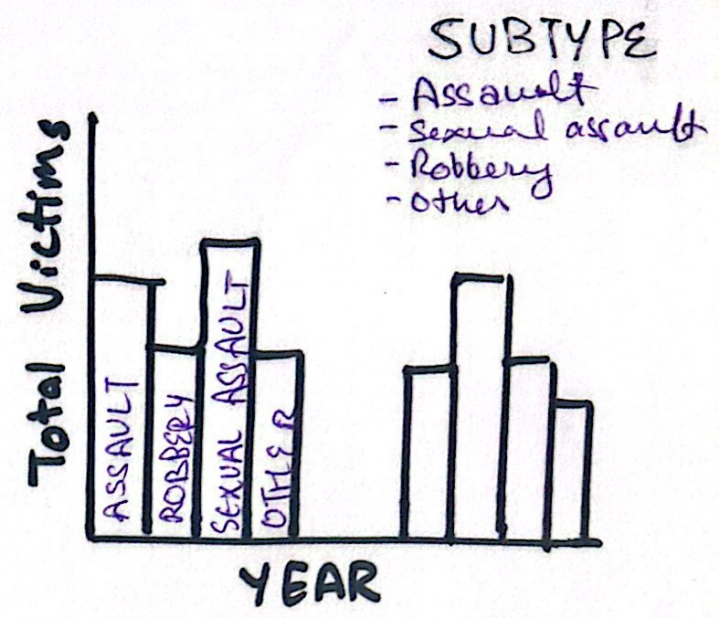 SUBTYPE
- Assault
- Sexual assault
- Robbery
- Other
Total Victims
ASSAULT
ROBBERY
SEXUAL ASSAULT
OTHER
YEAR